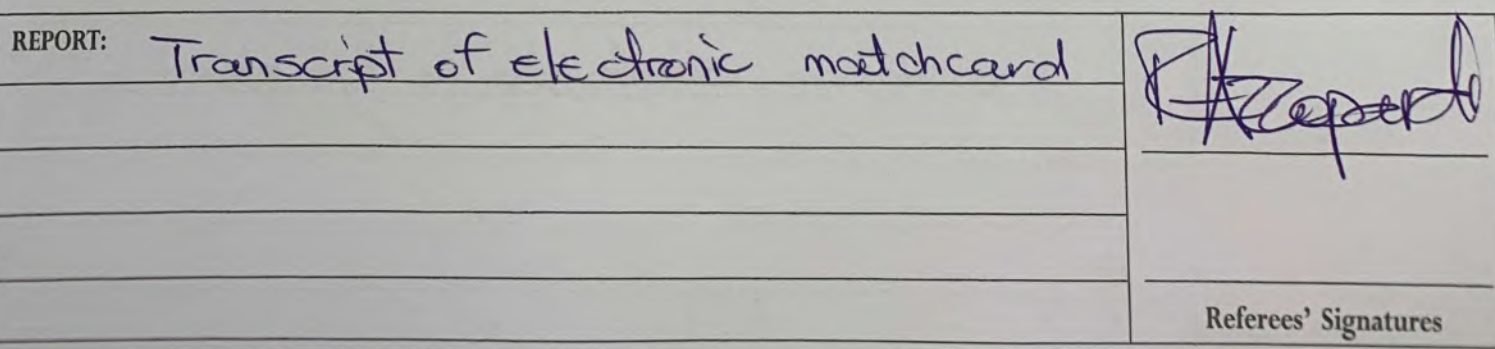 REPORT: Transcript of electronic matchcard
Referees' Signatures